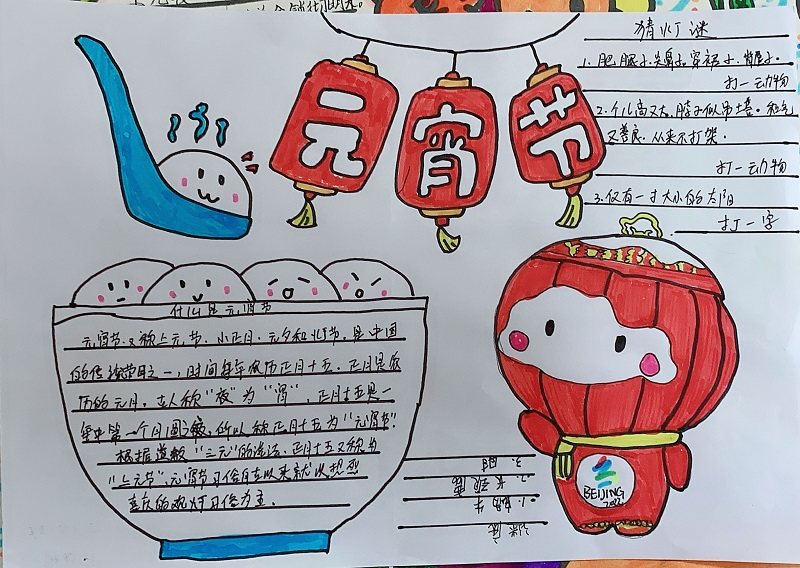 元宵节
猜灯谜
1. 肥腿子.尖鼻子.穿裙子.背屋子.
打一动物
2. 个儿高又大.脖子似吊塔.和气
又善良.从来不打架.
打一动物
3. 仅有一寸大小的太阳
打一字
什么是元宵节
元宵节又称上元节.小正月.元夕和灯节.是中国
的传统节日之一,时间每年农历正月十五.正月是农
历的元月.古人称“夜”为“宵”,正月十五是一
年中第一个月圆之夜.所以称正月十五为“元宵节”.
根据道教“三元”的说法.正月十五又称为
“上元节”.元宵节习俗自古以来就以热烈
喜庆的观灯习俗为主.
BEIJING
2022
谜底
2. 长颈鹿
3. 时